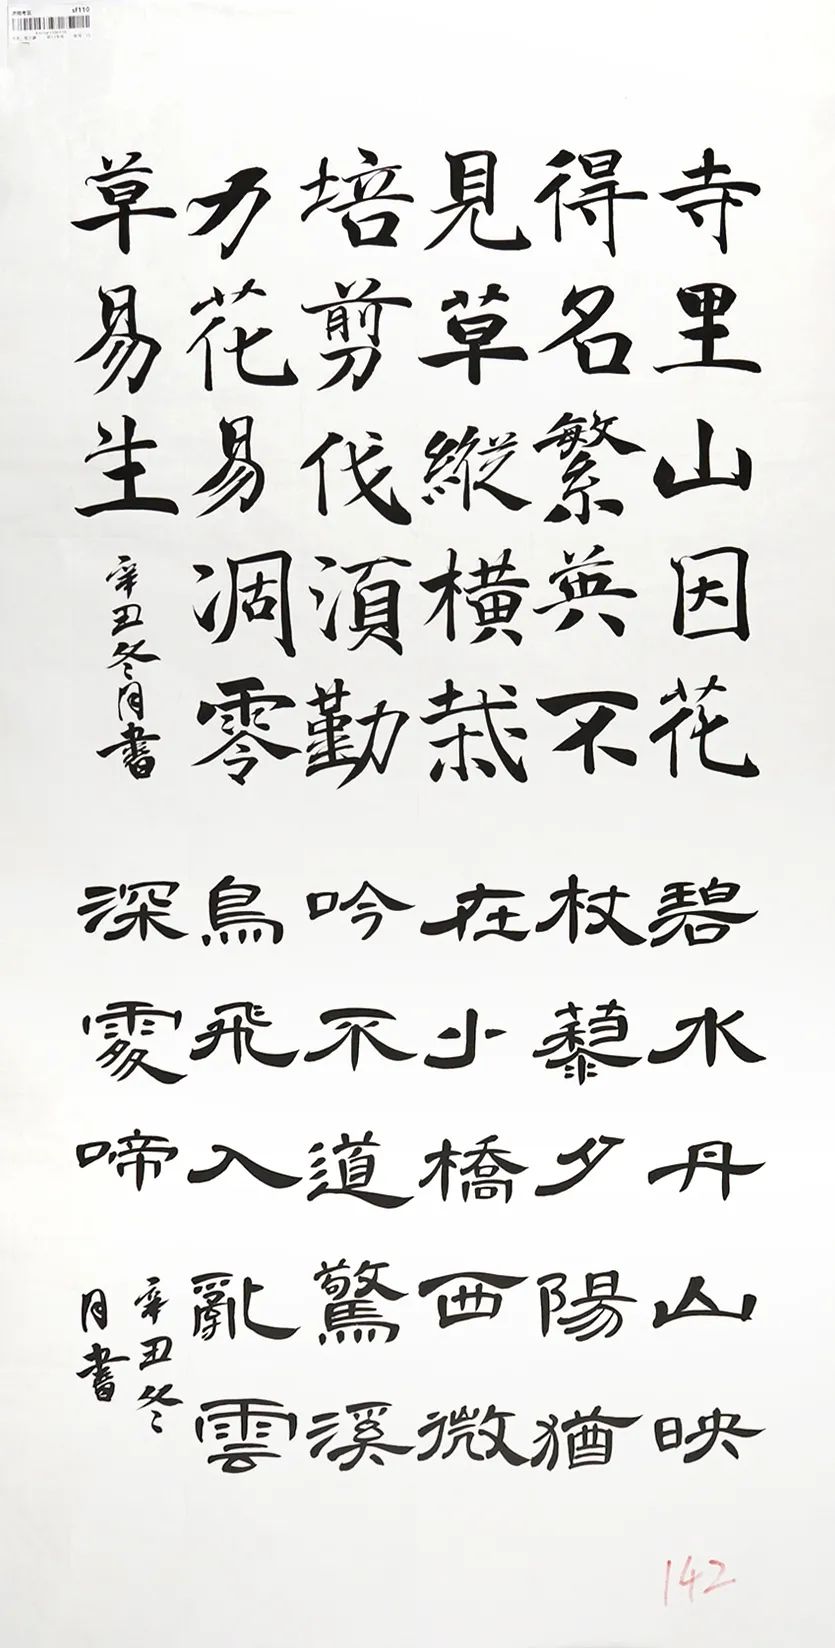 sf110
寺里山因花
得名繁英不
見草縱橫栽
培剪伐須勤
力花易凋零
草易生
辛丑冬月書
碧水丹山映
杖藜夕陽猶
在小橋西微
吟不道驚溪
鳥飛入亂雲
深處啼
辛丑冬
月書
142